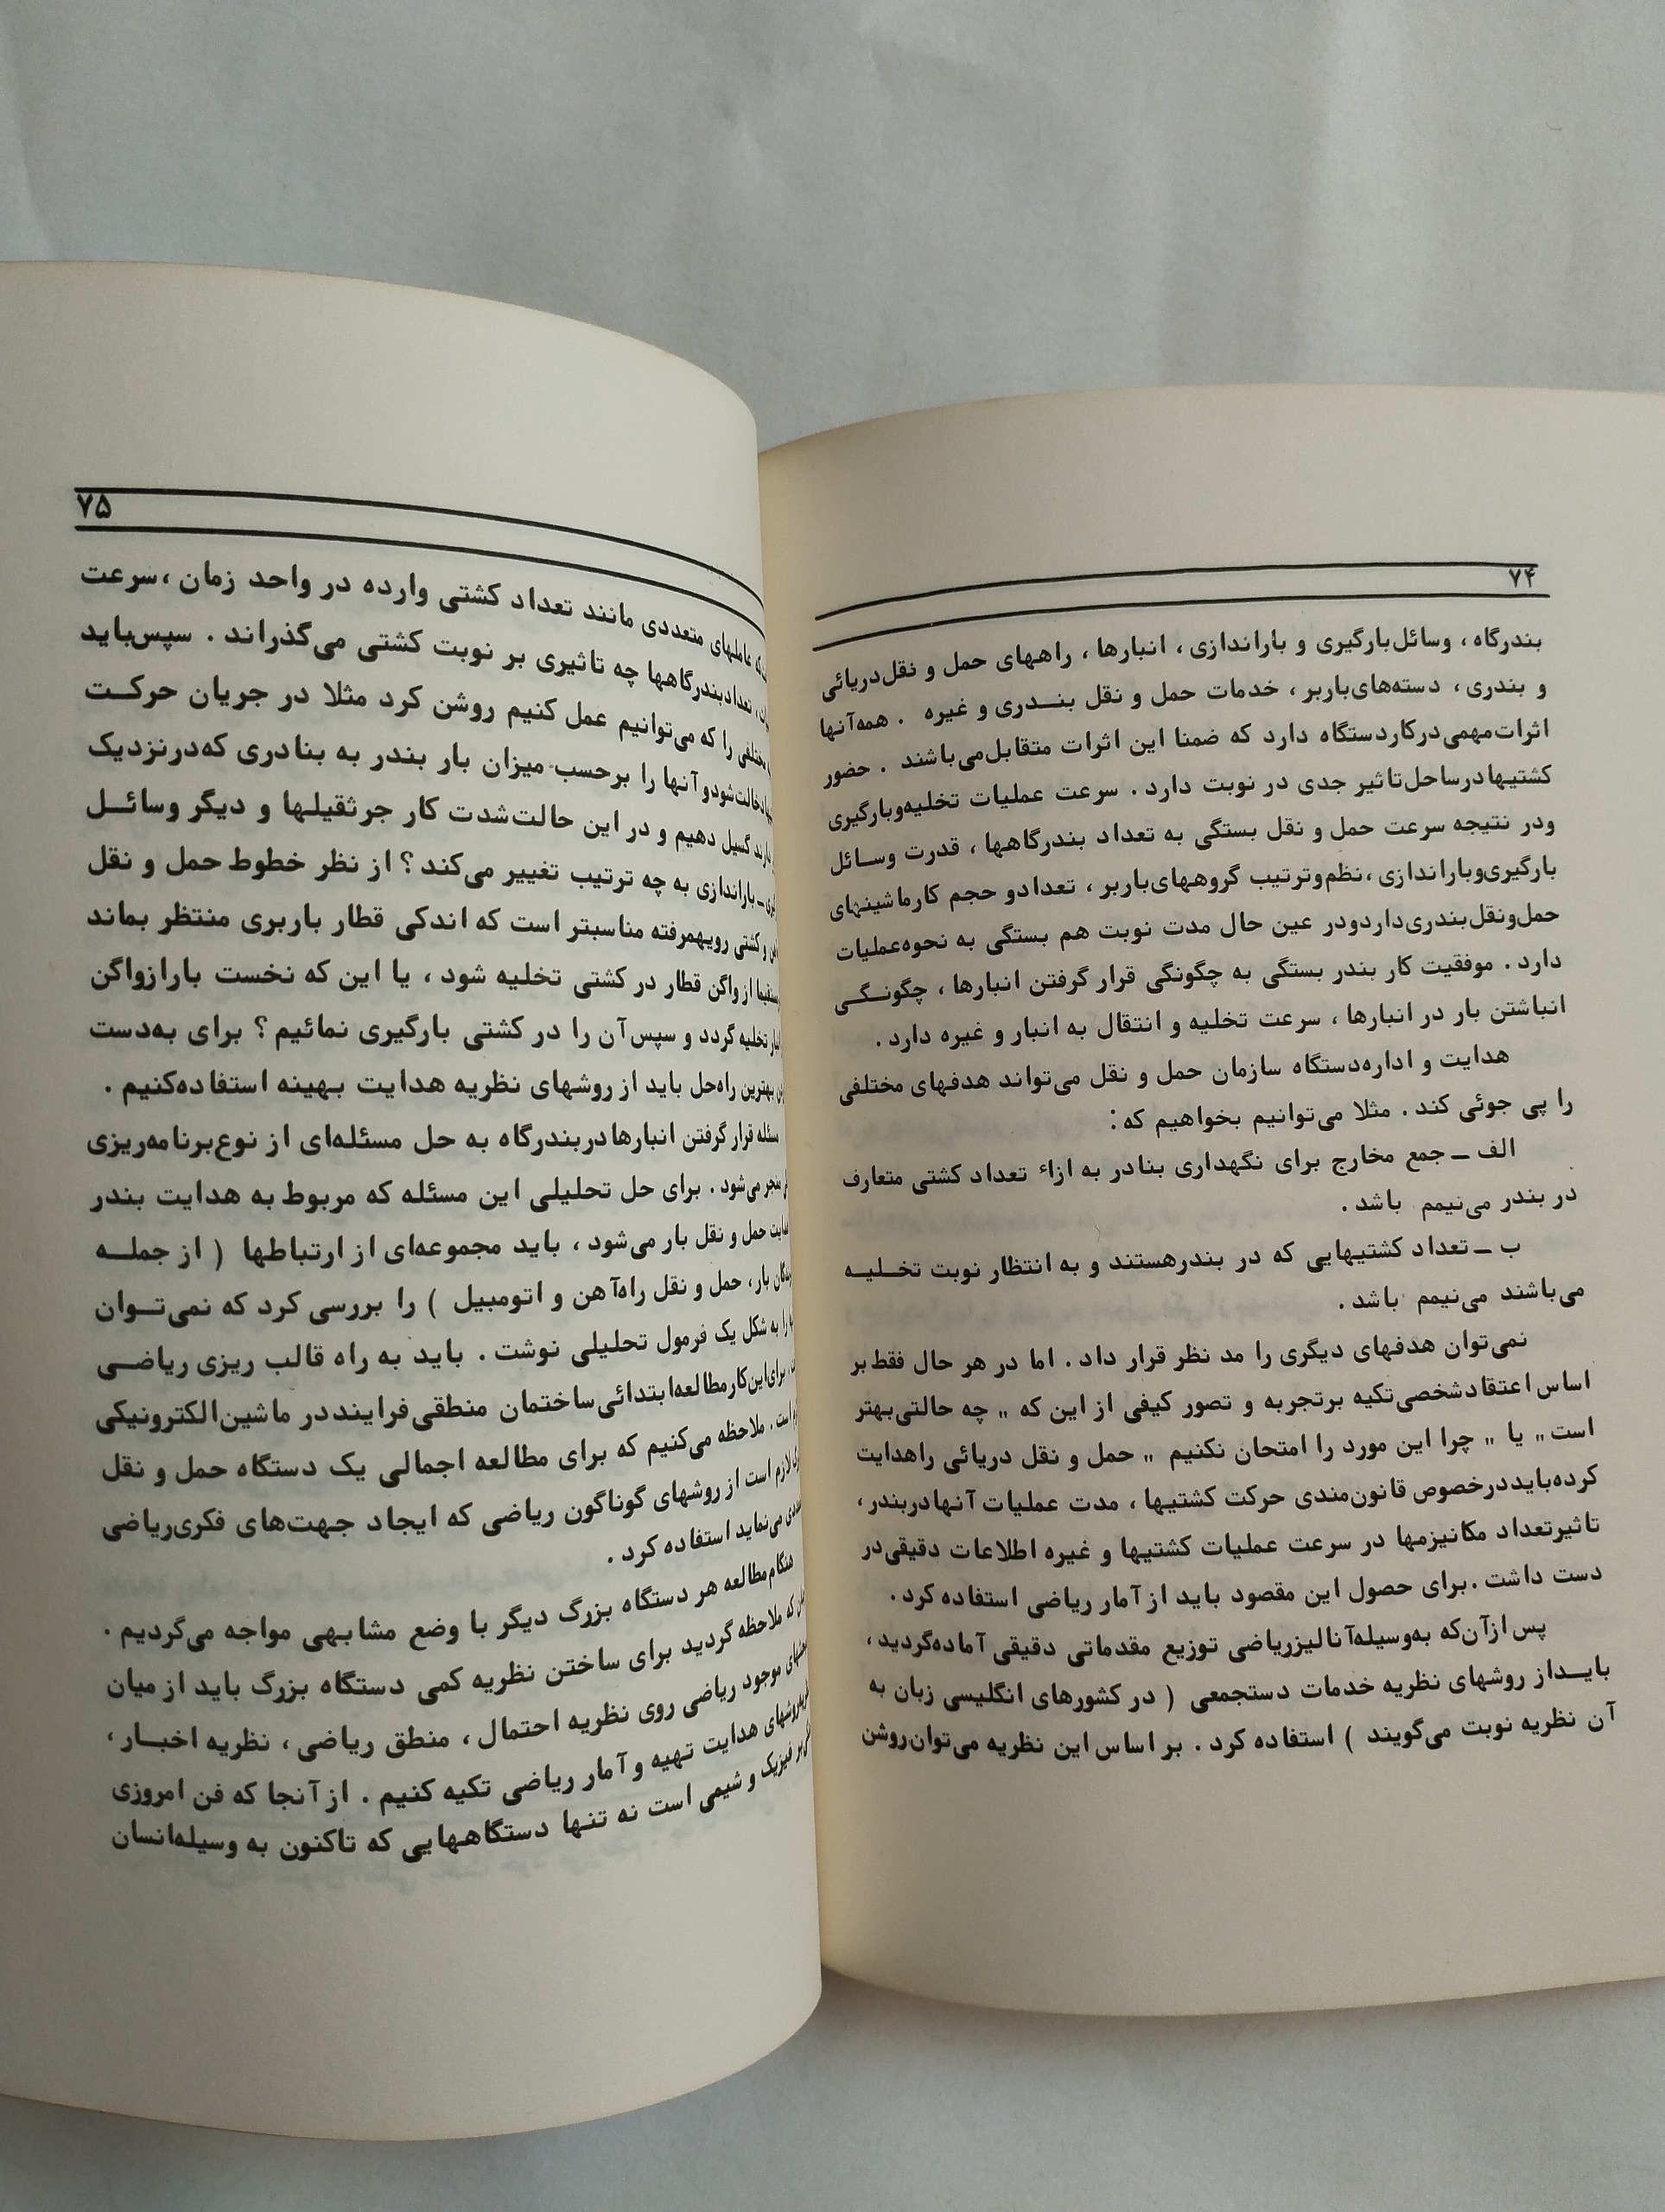 ۷۴
بندرگاه، وسائل‌بارگیری و باراندازی، انبارها، راههای حمل و نقل‌دریائی
و بندری، دسته‌های‌باربر، خدمات حمل و نقل بنـــدری و غیره . همه‌آنها
اثرات‌مهمی‌درکاردستگاه دارد که ضمنا این اثرات متقابل‌می‌باشند . حضور
کشتیهادرساحل‌تاثیر جدی در نوبت دارد. سرعت عملیات تخلیه‌وبارگیری
ودر نتیجه سرعت حمل و نقل بستگی به تعداد بندرگاهها، قدرت وســائل
بارگیری‌وباراندازی،نظم‌وترتیب گروههای‌باربر، تعدادو حجم کارماشینهای
حمل‌ونقل‌بندری‌داردودر عین حال مدت نوبت هم بستگی به نحوه‌عملیات
دارد. موفقیت کار بندر بستگی به چگونگی قرار گرفتن انبارها، چگونــگــی
انباشتن بار در انبارها، سرعت تخلیه و انتقال به انبار و غیره دارد.
هدایت و اداره‌دستگاه سازمان حمل و نقل می‌تواند هدفهای مختلفی
را پی جوئی کند. مثلا می‌توانیم بخواهیم که:
الف ــ جمع مخارج برای نگهداری بنادر به ازاء تعداد کشتی متعارف
در بندر می‌نیمم باشد.
ب ــ تعداد کشتیهایی که در بندرهستند و به انتظار نوبت تخــلیــه
می‌باشند می‌نیمم باشد.
نمی‌توان هدفهای دیگری را مد نظر قرار داد. اما در هر حال فقط‌بر
اساس‌اعتقادشخصی‌تکیه برتجربه و تصور کیفی از این که „ چه حالتی‌بهتر
است„ یا „ چرا این مورد را امتحان نکنیم „ حمل و نقل دریائی راهدایت
کرده‌بایددرخصوص قانون‌مندی حرکت کشتیها، مدت عملیات آنهادربندر،
تاثیرتعداد مکانیزمها در سرعت عملیات کشتیها و غیره اطلاعات دقیقی‌در
دست داشت.برای حصول این مقصود باید از آمار ریاضی استفاده کرد.
پس‌ازآن‌که به‌وسیله‌آنالیزریاضی توزیع مقدماتی دقیقی آماده‌گردید،
بایــداز روشهای نظریه خدمات دستجمعی ( در کشورهای انگلیسی زبان به
آن نظریه نوبت می‌گویند ) استفاده کرد. بر اساس این نظریه می‌توان‌روشن
۷۵
که عاملهای متعددی مانند تعداد کشتی وارده در واحد زمان،سرعت
تعدادبندرگاهها چه تاثیری بر نوبت کشتی می‌گذراند. سپس‌باید
مختلفی را که می‌توانیم عمل کنیم روشن کرد مثلا در جریان حرکــت
دخالت‌شودو آنها را برحسب میزان بار بندر به بنادری که‌درنزدیک
گسیل دهیم و در این حالت‌شدت کار جرثقیلها و دیگر وسائــل
ــ باراندازی به چه ترتیب تغییر می‌کند؟ از نظر خطوط حمل و نقل
و کشتی رویهمرفته مناسبتر است که اندکی قطار باربری منتظر بماند
از واگن قطار در کشتی تخلیه شود، یا این که نخست بارازواگن
تخلیه گردد و سپس‌آن را در کشتی بارگیری نمائیم؟ برای به‌دست
بهترین راه‌حل باید از روشهای نظریه هدایت بهینه استفاده‌کنیم.
مسئله قرار گرفتن انبارهادربندرگاه به حل مسئله‌ای از نوع‌برنامه‌ریزی
منجر می‌شود. برای حل تحلیلی این مسئله که مربوط به هدایت بندر
حمل و نقل بار می‌شود، باید مجموعه‌ای از ارتباطها ( از جملــه
بار، حمل و نقل راه‌آهن و اتومبیل ) را بررسی کرد که نمی‌تــوان
را به شکل یک فرمول تحلیلی نوشت. باید به راه قالب ریزی ریاضــی
برای‌این‌کارمطالعه‌ابتدائی‌ساختمان منطقی‌فراینددر ماشین‌الکترونیکی
است. ملاحظه می‌کنیم که برای مطالعه اجمالی یک دستگاه حمل و نقل
لازم است از روشهای گوناگون ریاضی که ایجاد جهت‌های فکری‌ریاضی
می‌نماید استفاده کرد.
هنگام‌مطالعه هر دستگاه بزرگ دیگر با وضع مشابهی مواجه می‌گردیم.
که ملاحظه گردید برای ساختن نظریه کمی دستگاه بزرگ باید از میان
موجود ریاضی روی نظریه احتمال، منطق ریاضی، نظریه اخبــار،
هدایت تهیه و آمار ریاضی تکیه کنیم. از آنجا که فن امروزی
فیزیک و شیمی است نه تنها دستگاههایی که تاکنون به وسیله‌انسان